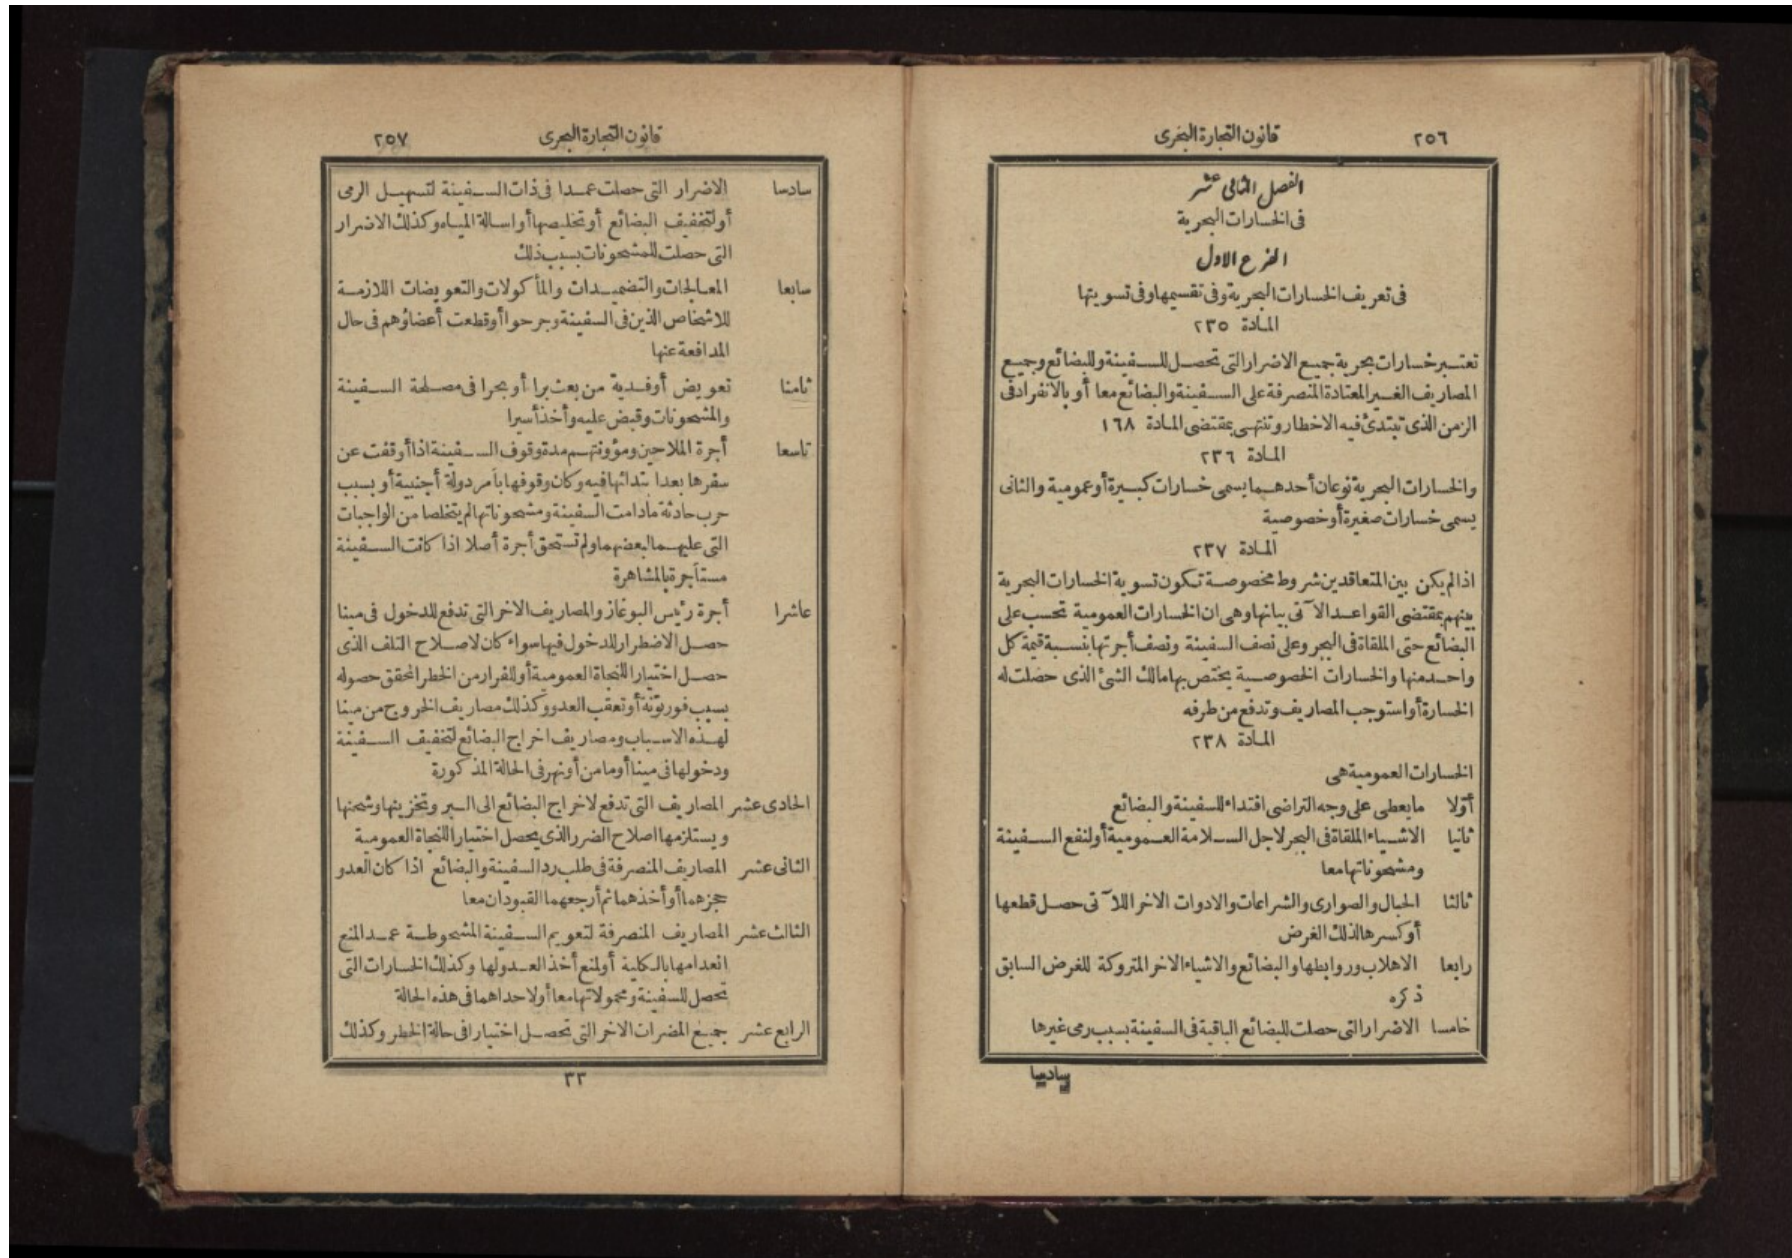 ٢٥٦
قانون التجارة البحرى
الفصل الثانى عشر
فى الخسارات البحرية
الفرع الاول
فى تعريف الخسارات البحرية وفى تقسيمها وفى تسويتها
المادة ٢٣٥
تعتبر خسارات بحرية جميع الاضرار التى تحصل للسفينة وللبضائع وجميع
المصاريف الغير المعتادة المنصرفة على السفينة والبضائع معا أو بالانفراد فى
الزمن الذى تبتدئ فيه الاخطار وتنتهى بمقتضى المادة ١٦٨
المادة ٢٣٦
والخسارات البحرية نوعان أحدهما يسمى خسارات كبيرة أو عمومية والثانى
يسمى خسارات صغيرة أو خصوصية
المادة ٢٣٧
اذا لم يكن بين المتعاقدين شروط مخصوصة تكون تسوية الخسارات البحرية
بينهم بمقتضى القواعد الآتى بيانها وهى ان الخسارات العمومية تحسب على
البضائع حتى الملقاة فى البحر وعلى نصف السفينة ونصف أجرتها بنسبة قيمة كل
واحد منها والخسارات الخصوصية يختص بها مالك الشئ الذى حصلت له
الخسارة أو استوجب المصاريف وتدفع من طرفه
المادة ٢٣٨
الخسارات العمومية هى
أوّلا ما يعطى على وجه التراضى افتداء للسفينة والبضائع
ثانيا الاشياء الملقاة فى البحر لاجل السلامة العمومية أو لنفع السفينة
ومشحوناتها معا
ثالثا الحبال والصوارى والشراعات والادوات الاخر اللآتى حصل قطعها
أو كسرها لذلك الغرض
رابعا الاهلاب وروابطها والبضائع والاشياء الاخر المتروكة للغرض السابق
ذكره
خامسا الاضرار التى حصلت للبضائع الباقية فى السفينة بسبب رمى غيرها
سادسا
قانون التجارة البحرى
٢٥٧
سادسا الاضرار التى حصلت عمدا فى ذات السفينة لتسهيل الرمى
أو لتخفيف البضائع أو تخليصها أو اسالة المياه وكذلك الاضرار
التى حصلت للمشحونات بسبب ذلك
سابعا المعالجات والتضميدات والمأكولات والتعويضات اللازمة
للاشخاص الذين فى السفينة وجرحوا أو قطعت أعضاؤهم فى حال
المدافعة عنها
ثامنا تعويض أو فدية من بعث برا أو بحرا فى مصلحة السفينة
والمشحونات وقبض عليه وأخذ أسيرا
تاسعا أجرة الملاحين ومؤونتهم مدة وقوف السفينة اذا أوقفت عن
سفرها بعد ابتدائها فيه وكان وقوفها بأمر دولة أجنبية أو بسبب
حرب حادثة مادامت السفينة ومشحوناتها لم يتخلصا من الواجبات
التى عليهما لبعضهما ولم تستحق أجرة أصلا اذا كانت السفينة
مستأجرة بالمشاهرة
عاشرا أجرة رئيس البوغاز والمصاريف الاخر التى تدفع للدخول فى مينا
حصل الاضطرار للدخول فيها سواء كان لاصلاح التلف الذى
حصل اختيارا للنجاة العمومية أو للفرار من الخطر المحقق حصوله
بسبب فورتونة أو تعقب العدو وكذلك مصاريف الخروج من مينا
لهذه الاسباب ومصاريف اخراج البضائع لتخفيف السفينة
ودخولها فى مينا أو مامن أو نهر فى الحالة المذكورة
الحادى عشر المصاريف التى تدفع لاخراج البضائع الى البر وتخزينها وشحنها
ويستلزمها اصلاح الضرر الذى يحصل اختيارا للنجاة العمومية
الثانى عشر المصاريف المنصرفة فى طلب رد السفينة والبضائع اذا كان العدو
حجزهما أو أخذهما ثم أرجعهما القبودان معا
الثالث عشر المصاريف المنصرفة لتعويم السفينة المشحوطة عمدا لمنع
انعدامها بالكلية أو لمنع أخذ العدو لها وكذلك الخسارات التى
تحصل للسفينة ومحمولاتها معا أو لاحداهما فى هذه الحالة
الرابع عشر جميع المضرات الاخر التى تحصل اختيارا فى حالة الخطر وكذلك
٣٣